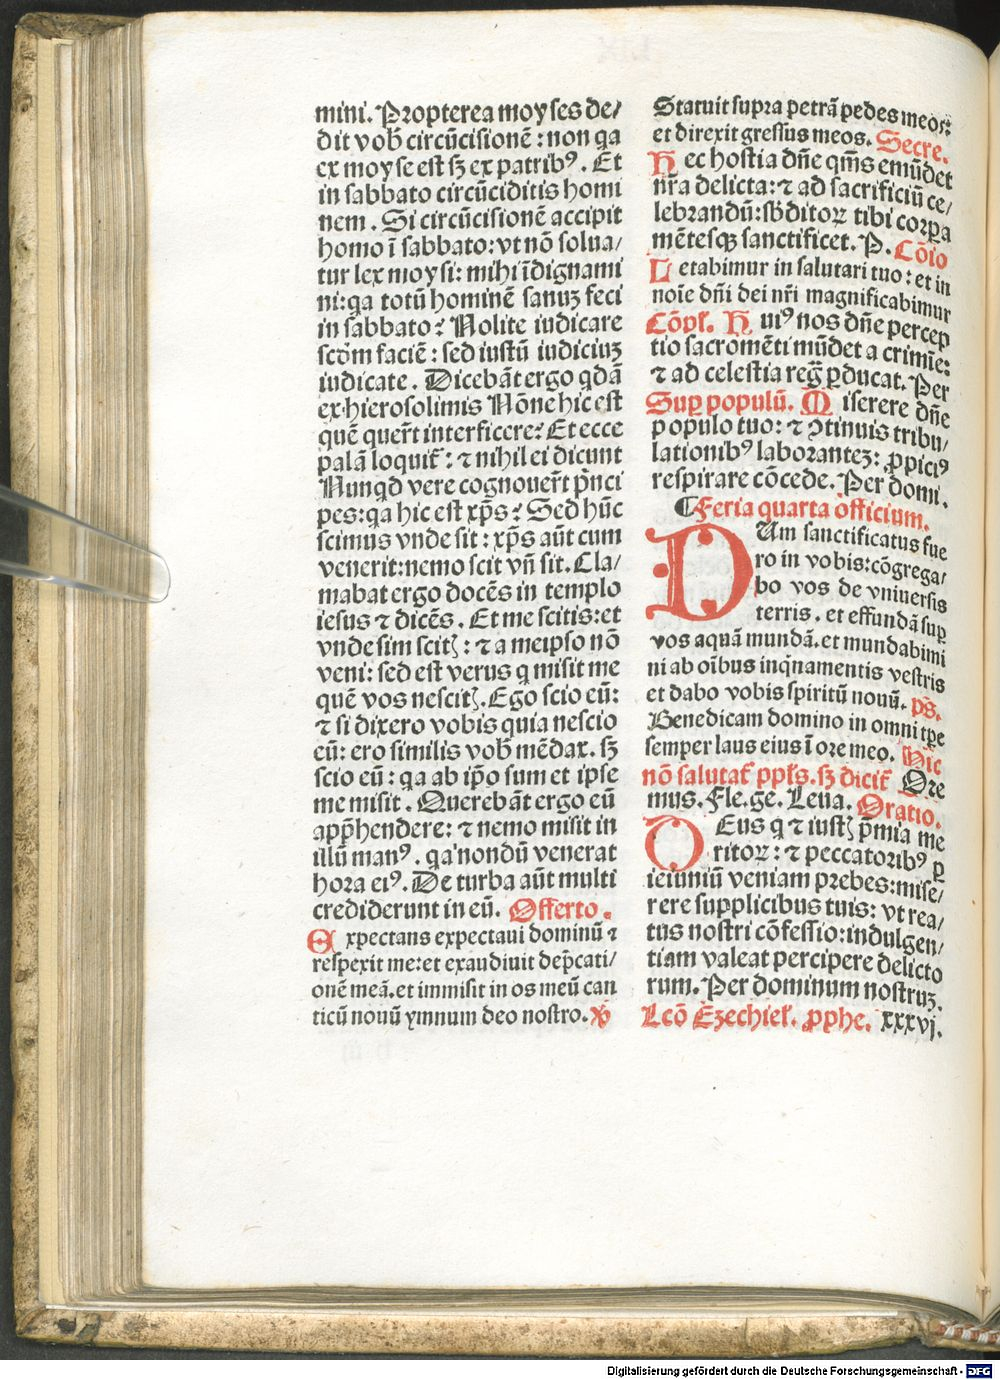 mini. Propterea moyses de/
dit vob̄ circūcisionē : non qa
ex moyse est sꝫ ex patribꝰ . Et
in sabbato circūciditis homi
nem . Si circūcisionē accipit
homo ī sabbato: vt nō solua/
tur lex moysi: mihi īdignami
ni: qa totū hominē sanuꝫ feci
in sabbato? Nolite iudicare
scḋm faciē : sed iustū iudiciuꝫ
iudicate . Dicebāt ergo qdā
ex hierosolimis Nōne hic est
quē quert̄ interficere? Et ecce
palā loquit᷑ : ⁊ nihil ei dicunt
Nunqd vere cognouert̄ pn̄ci
pes: qa hic est xp̄s? Sed hūc
scimus vnde sit : xp̄s aūt cum
venerit: nemo scit vn̄ sit. Cla/
mabat ergo docēs in templo
iesus ⁊ dicēs . Et me scitis: et
vnde sim scitꝭ : ⁊ a meipso nō
veni: sed est verus q misit me
quē vos nescitꝭ. Ego scio eū:
⁊ si dixero vobis quia nescio
eū: ero similis vob̄ mēdax. sꝫ
scio eū : qa ab ip̄o sum et ipse
me misit . Querebāt ergo eū
app̄hendere: ⁊ nemo misit in
illū manꝰ . qa nondū venerat
hora eiꝰ. De turba aūt multi
crediderunt in eū. Offerto .
Expectans expectaui dominū ⁊
respexit me: et exaudiuit dep̄cati/
onē meā. et immisit in os meū can
ticū nouū ymnum deo nostro. ꝟ
Statuit supra petrā pedes meos:
et direxit gressus meos. Secre.
Hec hostia dn̄e qm̄s emūdet
nr̄a delicta: ⁊ ad sacrificiū ce/
lebrandū: sb̄ditoꝝ tibi corꝑa
mētesqꝫ sanctificet. P. Cōio
Letabimur in salutari tuo : et in
noīe dn̄i dei nr̄i magnificabimur
Cōpl̄. Huiꝰ nos dn̄e percep
tio sacromēti mūdet a crimīe:
⁊ ad celestia reḡ ꝑducat. Per
Suꝑ populū. Miserere dn̄e
populo tuo: ⁊ ꝯtinuis tribu/
lationibꝰ laborantez: ꝓpiciꝰ
respirare cōcede. Per domi.
¶Feria quarta officium.
DUm sanctificatus fue
ro in vobis: cōgrega/
bo vos de vniuersis
terris . et effundā suꝑ
vos aquā mundā. et mundabimi
ni ab oībus inqnamentis vestris
et dabo vobis spiritū nouū. ps̄.
Benedicam domino in omni tꝑe
semper laus eius ī ore meo. Hic
nō salutat᷑ ppl̄s. sꝫ dicit᷑ Ore
mus. Fle. ge. Leua. Oratio.
DEus q ⁊ iustꝭ p̄mia me
ritoꝝ : ⁊ peccatoribꝰ ꝑ
ieiuniū veniam prebes: mise/
rere supplicibus tuis: vt rea/
tus nostri cōfessio: indulgen/
tiam valeat percipere delicto
rum. Per dominum nostruꝫ.
Lcō Ezechiel̄. ꝓphe. xxxvj.
Digitalisierung gefördert durch die Deutsche Forschungsgemeinschaft - DFG